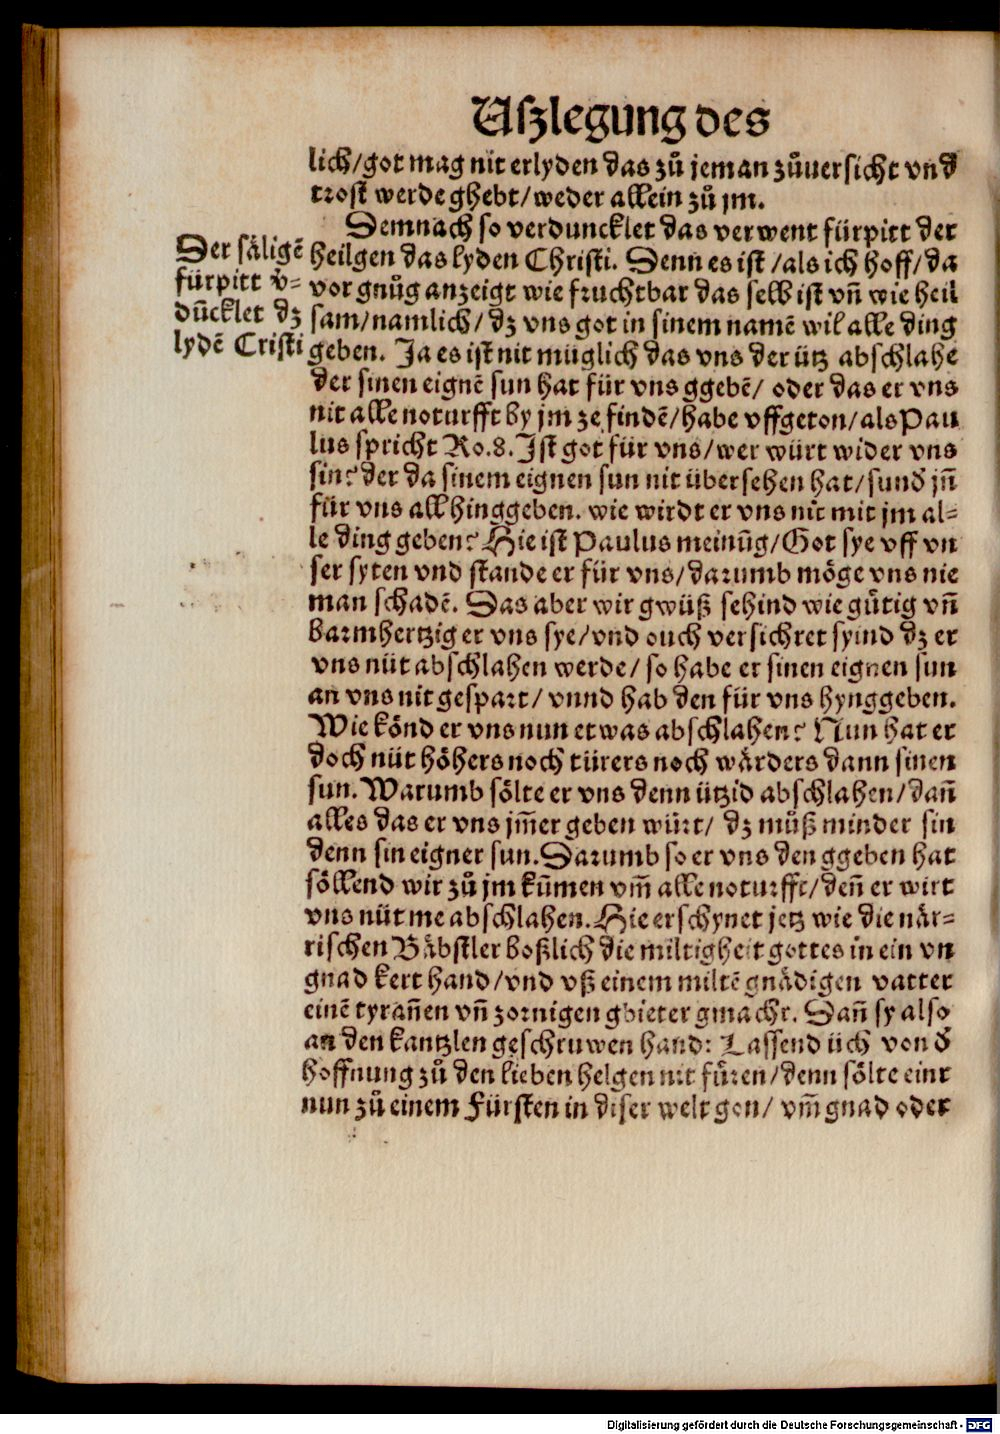 Uſzlegung des
lich/got mag nit erlyden das zů jeman zůuersicht vnd
trost werde ghebt/weder allein zů jm.
Demnach so verduncklet das verwent fürpitt der
heilgen das lyden Christi. Denn es ist/als ich hoff/da
vor gnůg anzeigt wie fruchtbar das selb ist vñ wie heil
sam/namlich/dz vns got in sinem namē wil alle ding
geben. Ja es ist nit müglich das vns der ütz abschlahe
der sinen eignē sun hat für vns ggebē/oder das er vns
nit alle noturfft by jm ze findē/habe vffgeton/als Pau
lus spricht Ro.8. Ist got für vns/wer würt wider vns
sin? der da sinem eignen sun nit übersehen hat/sund̕ jñ
für vns all hinggeben. wie wirdt er vns nit mit jm al=
le ding geben? Hie ist Paulus meinūg/Got sye vff vn
ser syten vnd stande er für vns/darumb möge vns nie
man schadē. Das aber wir gwüß sehind wie gůtig vñ
barmhertzig er vns sye/vnd ouch versichret syind dz er
vns nüt abschlahen werde/so habe er sinen eignen sun
an vns nit gespart/vnnd hab den für vns hynggeben.
Wie könd er vns nun etwas abschlahen? Nun hat er
doch nüt höhers noch türers noch wärders dann sinen
sun. Warumb sölte er vns denn ützid abschlahen/dañ
alles das er vns jm̄er geben würt/dz můß minder sin
denn sin eigner sun. Darumb so er vns den ggeben hat
söllend wir zů jm kūmen vm̄ alle noturfft/deñ er wirt
vns nüt me abschlahen. Hie erschynet jetz wie die när=
rischen Bäbstler boßlich die miltigheit gottes in ein vn
gnad kert hand/vnd vß einem miltē gnädigen vatter
einē tyrañen vñ zornigen gbieter gmacht. Dañ sy also
an den kantzlen geschruwen hand: Lassend üch von d̕
hoffnung zů den lieben helgen nit füren/denn sölte einr
nun zů einem Fürsten in diser welt gon/vm̄ gnad oder
Der säligē
fürpitt v̕=
dūcklet dz
lydē Cristi
Digitalisierung gefördert durch die Deutsche Forschungsgemeinschaft - DFG